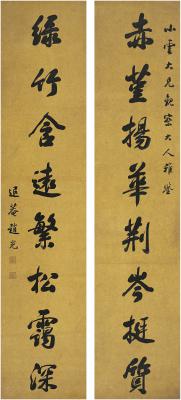 小云大兄亲家大人雅鉴
赤堇揚華荆岑挺質
緑竹含遠繁松靄深
退菴趙光